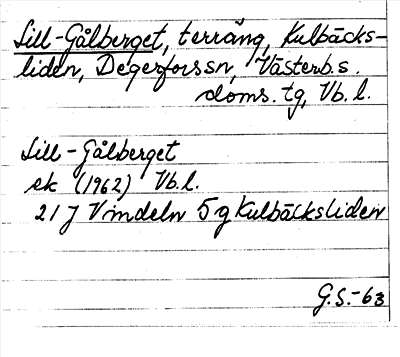 Lill-Gålberget, terräng, Kulbäcks-
liden, Degerforssn, Västerb.s.
doms. tg, Vb. l.
Lill-Gålberget
ek (1962) Vb.l.
21J Vindeln 5g Kulbäcksliden
G.S.-63